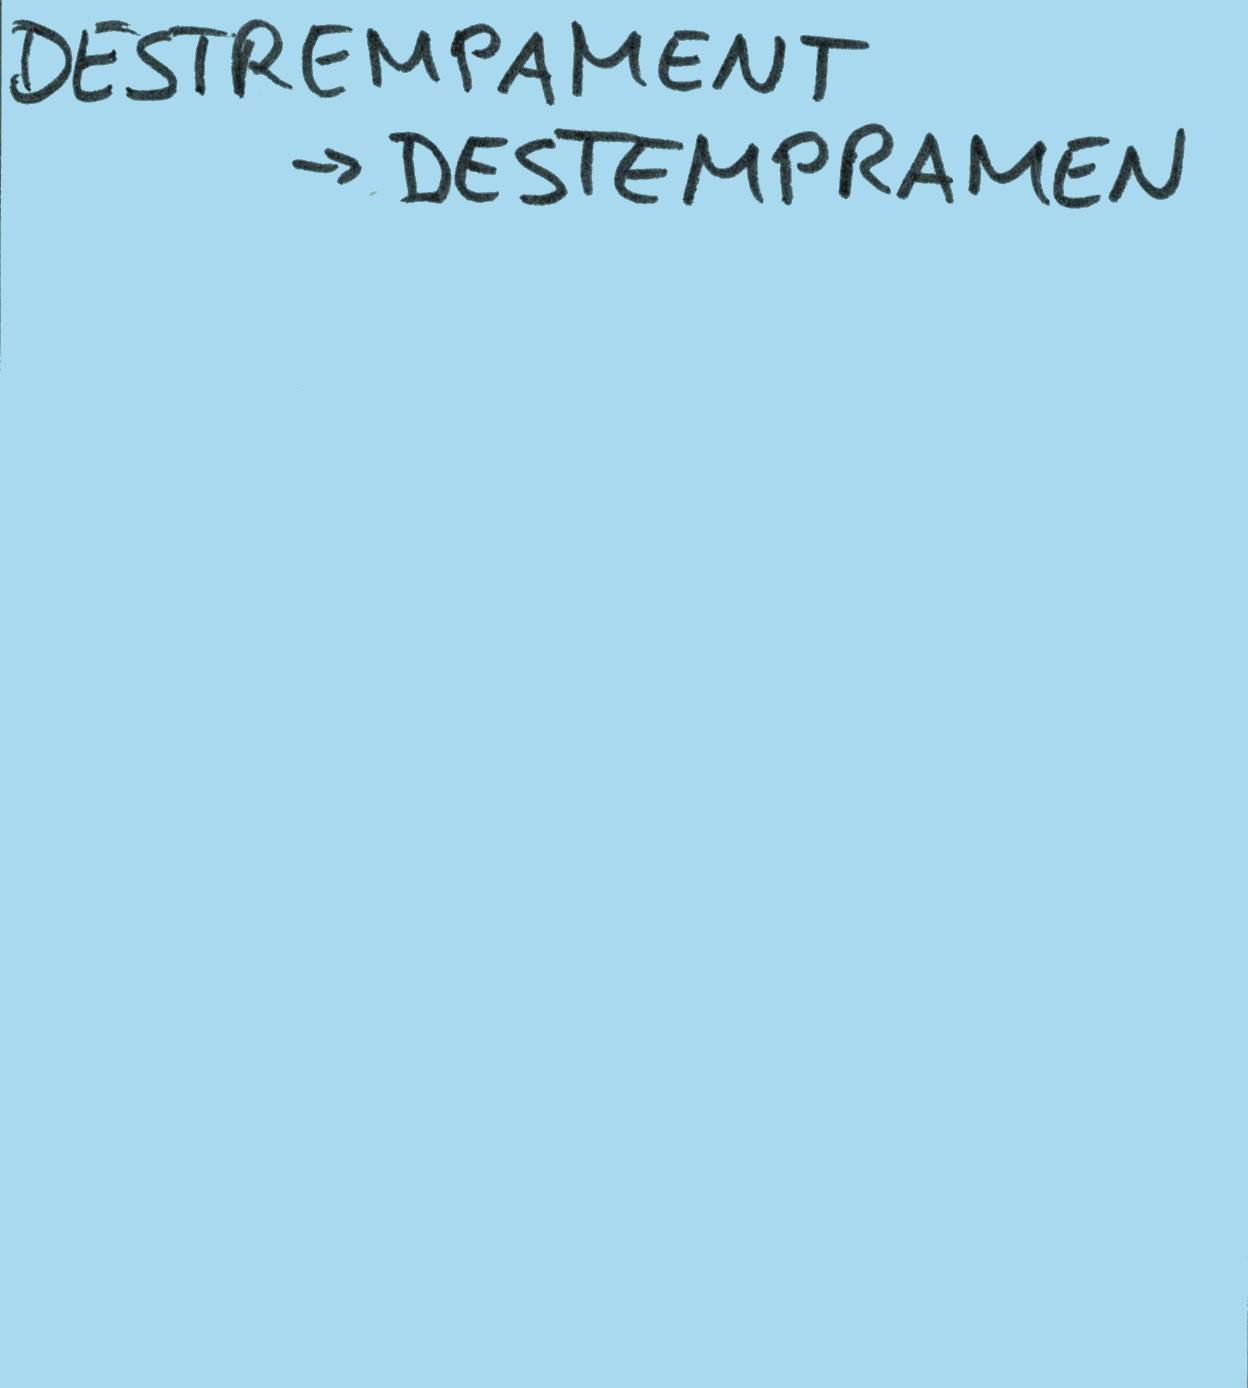 DESTREMPAMENT
→ DESTEMPRAMEN